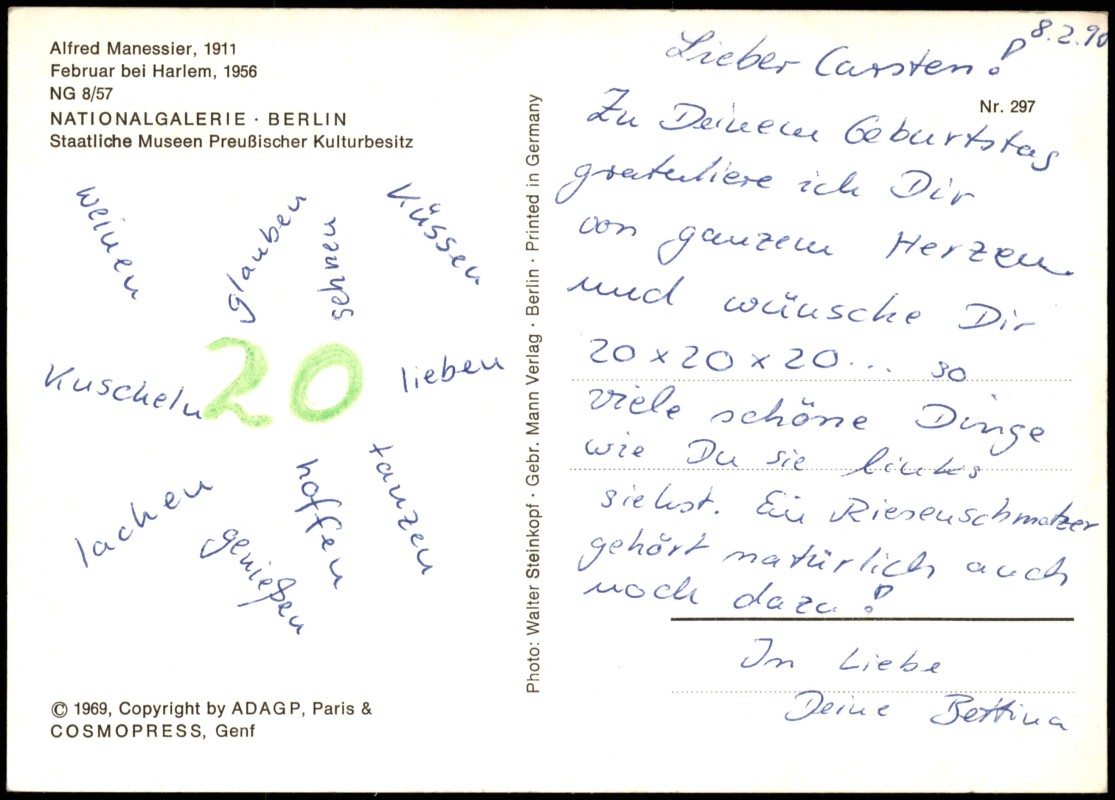 Alfred Manessier, 1911
Februar bei Harlem, 1956
NG 8/57
NATIONALGALERIE · BERLIN
Staatliche Museen Preußischer Kulturbesitz
weinen
glauben
sehnen
küssen
Kuscheln
20
lieben
lachen
genießen
hoffen
tanzen
© 1969, Copyright by ADAGP, Paris &
COSMOPRESS, Genf
Photo: Walter Steinkopf · Gebr. Mann Verlag · Berlin · Printed in Germany
8.2.90
Lieber Carsten!
Nr. 297
Zu Deinem Geburtstag
gratuliere ich Dir
von ganzem Herzen
und wünsche Dir
20 x 20 x 20... so
viele schöne Dinge
wie Du sie links
siehst. Ein Riesenschmatzer
gehört natürlich auch
noch dazu!
In Liebe
Deine Bettina